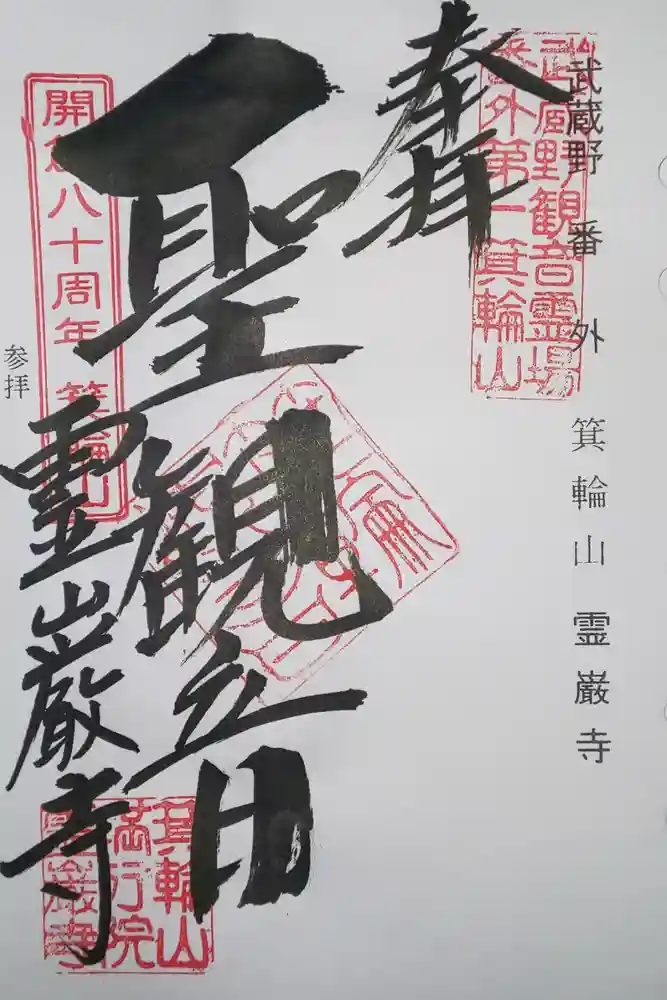 武蔵野番外 箕輪山 霊巌寺
武蔵野観音霊場
番外第一箕輪山
奉拝
聖観音
霊巌寺
開創八十周年 箕輪山
参拝
箕輪山
満行院
霊巌寺